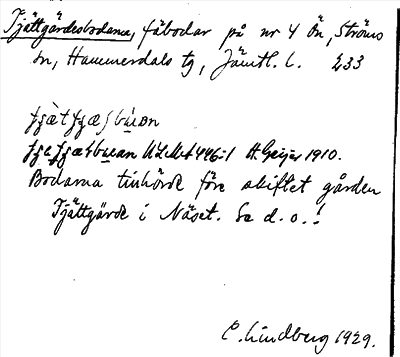 Tjättgärdesbodarna, fäbodar på nr 4 Ön, Ströms
sn, Hammerdals tg, Jämtl. l. 233
A. Geijer 1910.
Bodarna tillhörde före skiftet gården
Tjättgärde i Näset. Se d. o.!
C. Lindberg 1929.